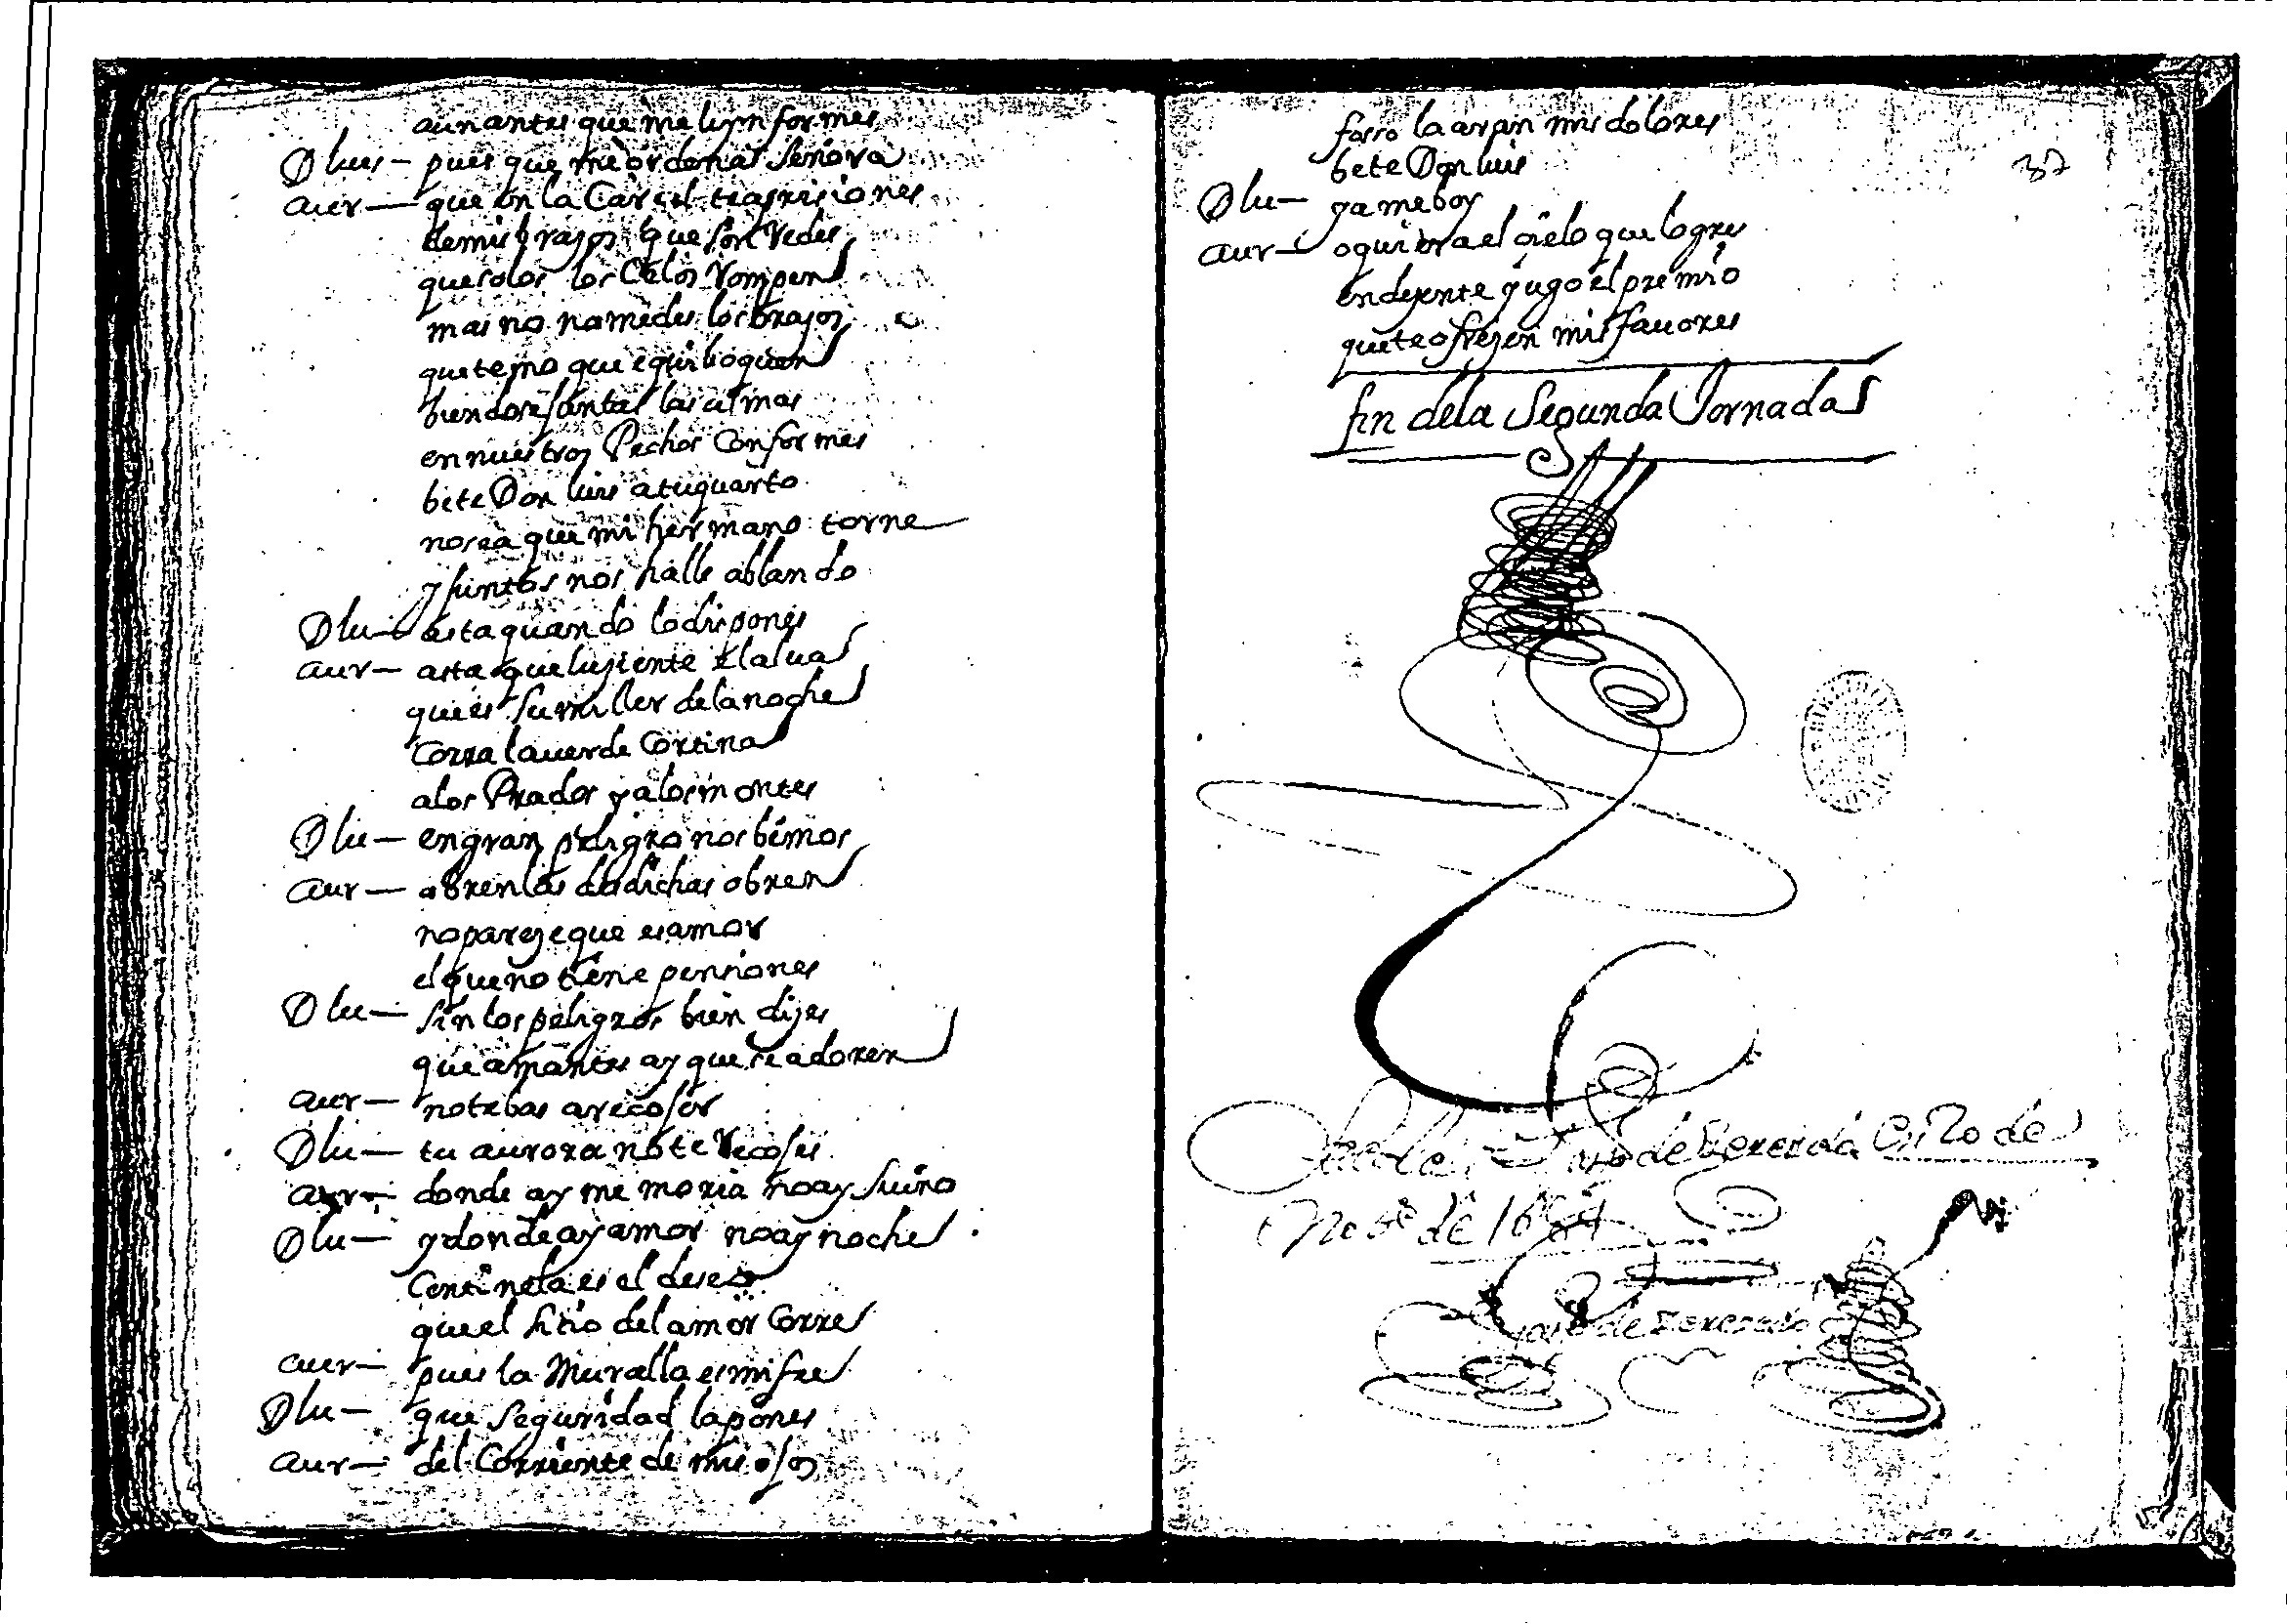 aun antes que me lo ynformes
Dlues — pues que me ordenas señora
aur — que en la Carcel te aprisiones
de mis brazos que son Redes
que solos los Celos Rompen
mas no no me des los brazos
que temo que equiboquen
biendose juntas las almas
en nuestros Pechos Conformes
bete Don luis a tu quarto
no sea que mi hermano torne
y juntos nos halle ablando
Dlu — asta quando lo dispones
aur — asta que luziente el alua
que es sumiller de la noche
Corra la uerde Cortina
a los Prados y a los montes
Dlu — en gran peligro nos bimos
aur — abren las desdichas obren
no pareze que es amor
el que no tiene pensiones
Dlu — sin los peligros bien dizes
que amantes ay que se adoren
aur — no te bas a recojer
Dlu — tu aurora no te Recojes
aur — donde ay memoria no ay sueño
Dlu — y donde ay amor no ay noche
Centinela es el deseo
que el sitio del amor Corre
aur — pues la Muralla es mi fee
Dlu — que seguridad la pones
aur — del Corriente de mis ojos
37
foso la aran mis dolores
bete Don luis
Dlu — ya me boy
aur — o quiera el cielo que logres
en dezente yugo el premio
que te ofrezen mis fauores
fin de la Segunda Jornada
de en 20 de
de 1684
de